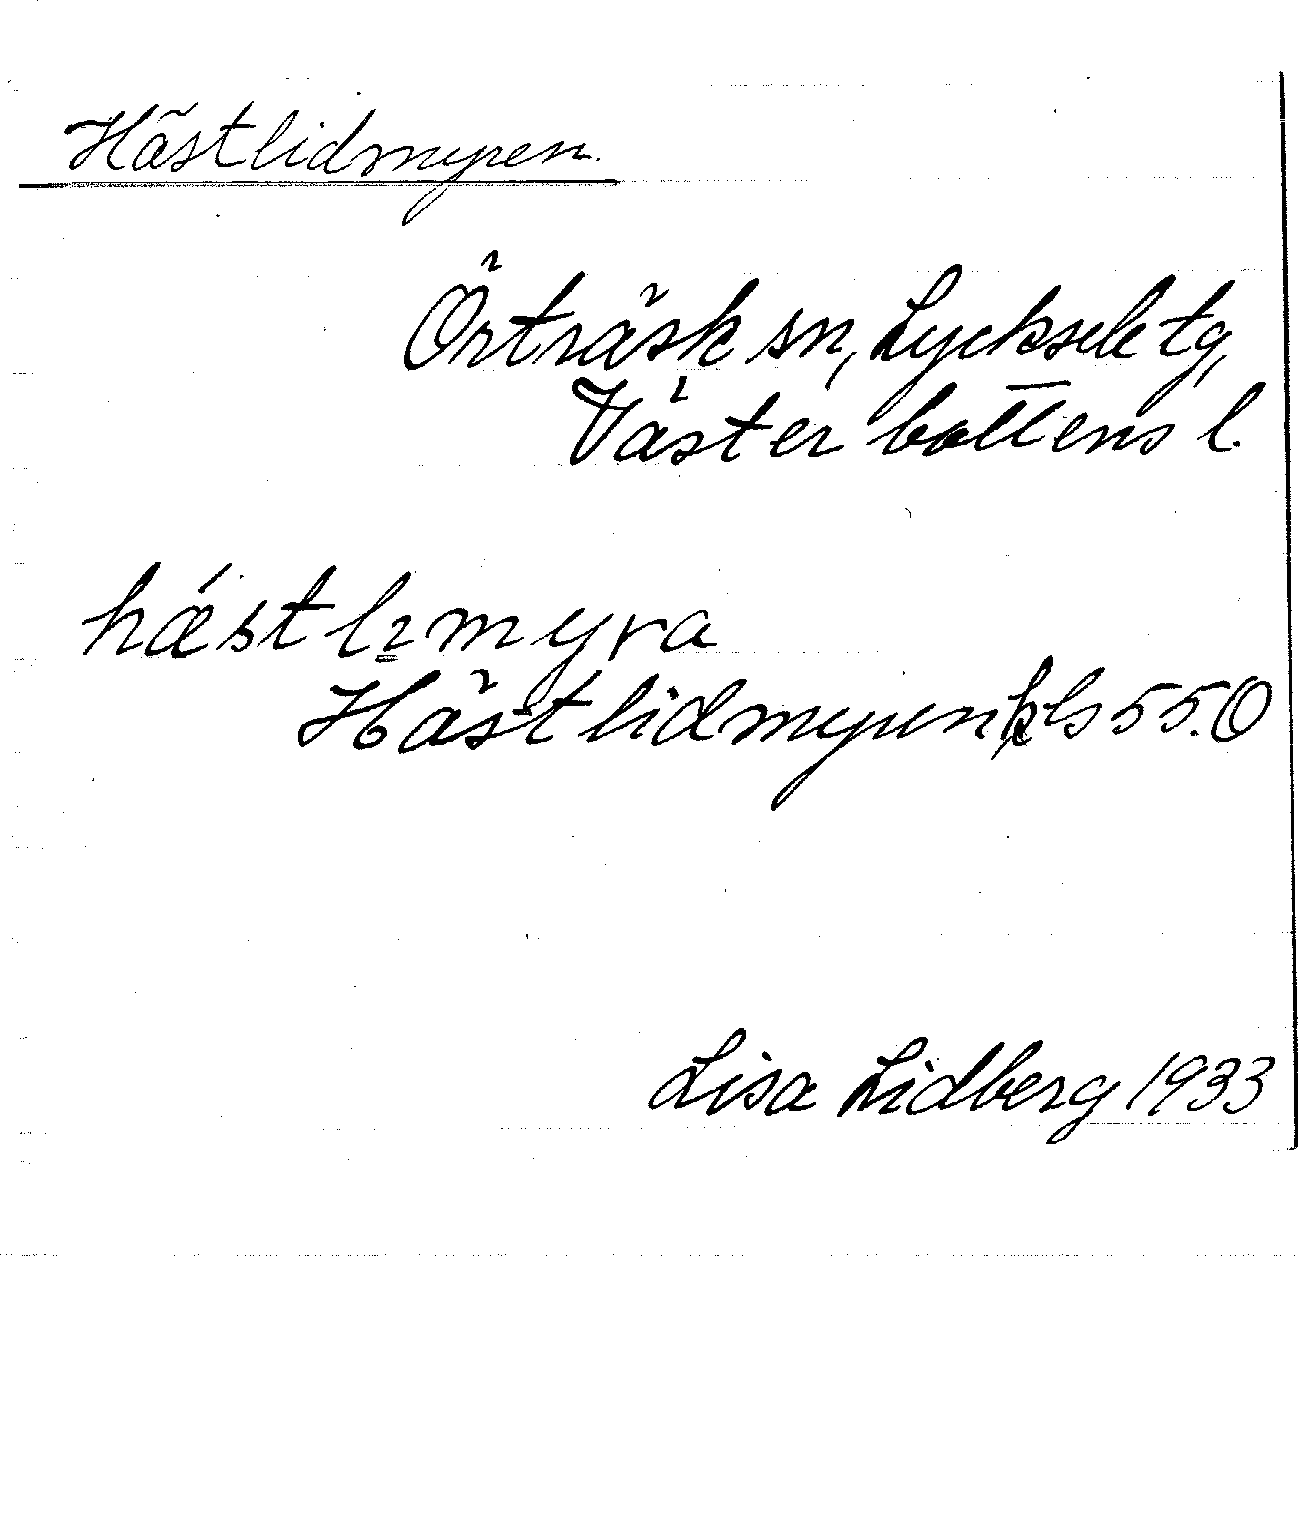 Hästlidmyren.
Örträsk sn, Lycksele tg,
Västerbottens l.
hæ´stlımyra
Hästlidmyren kls 55.O
Lisa Lidberg 1933